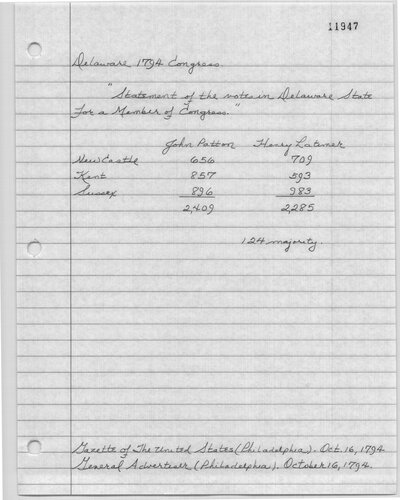 11947
Delaware 1794 Congress
"Statement of the votes in Delaware State
For a Member of Congress."
John Patton Henry Latimer
New Castle 656 709
Kent 857 593
Sussex 896 983
2,409 2,285
124 majority.
Gazette of The United States (Philadelphia). Oct. 16, 1794
General Advertiser (Philadelphia). October 16, 1794.